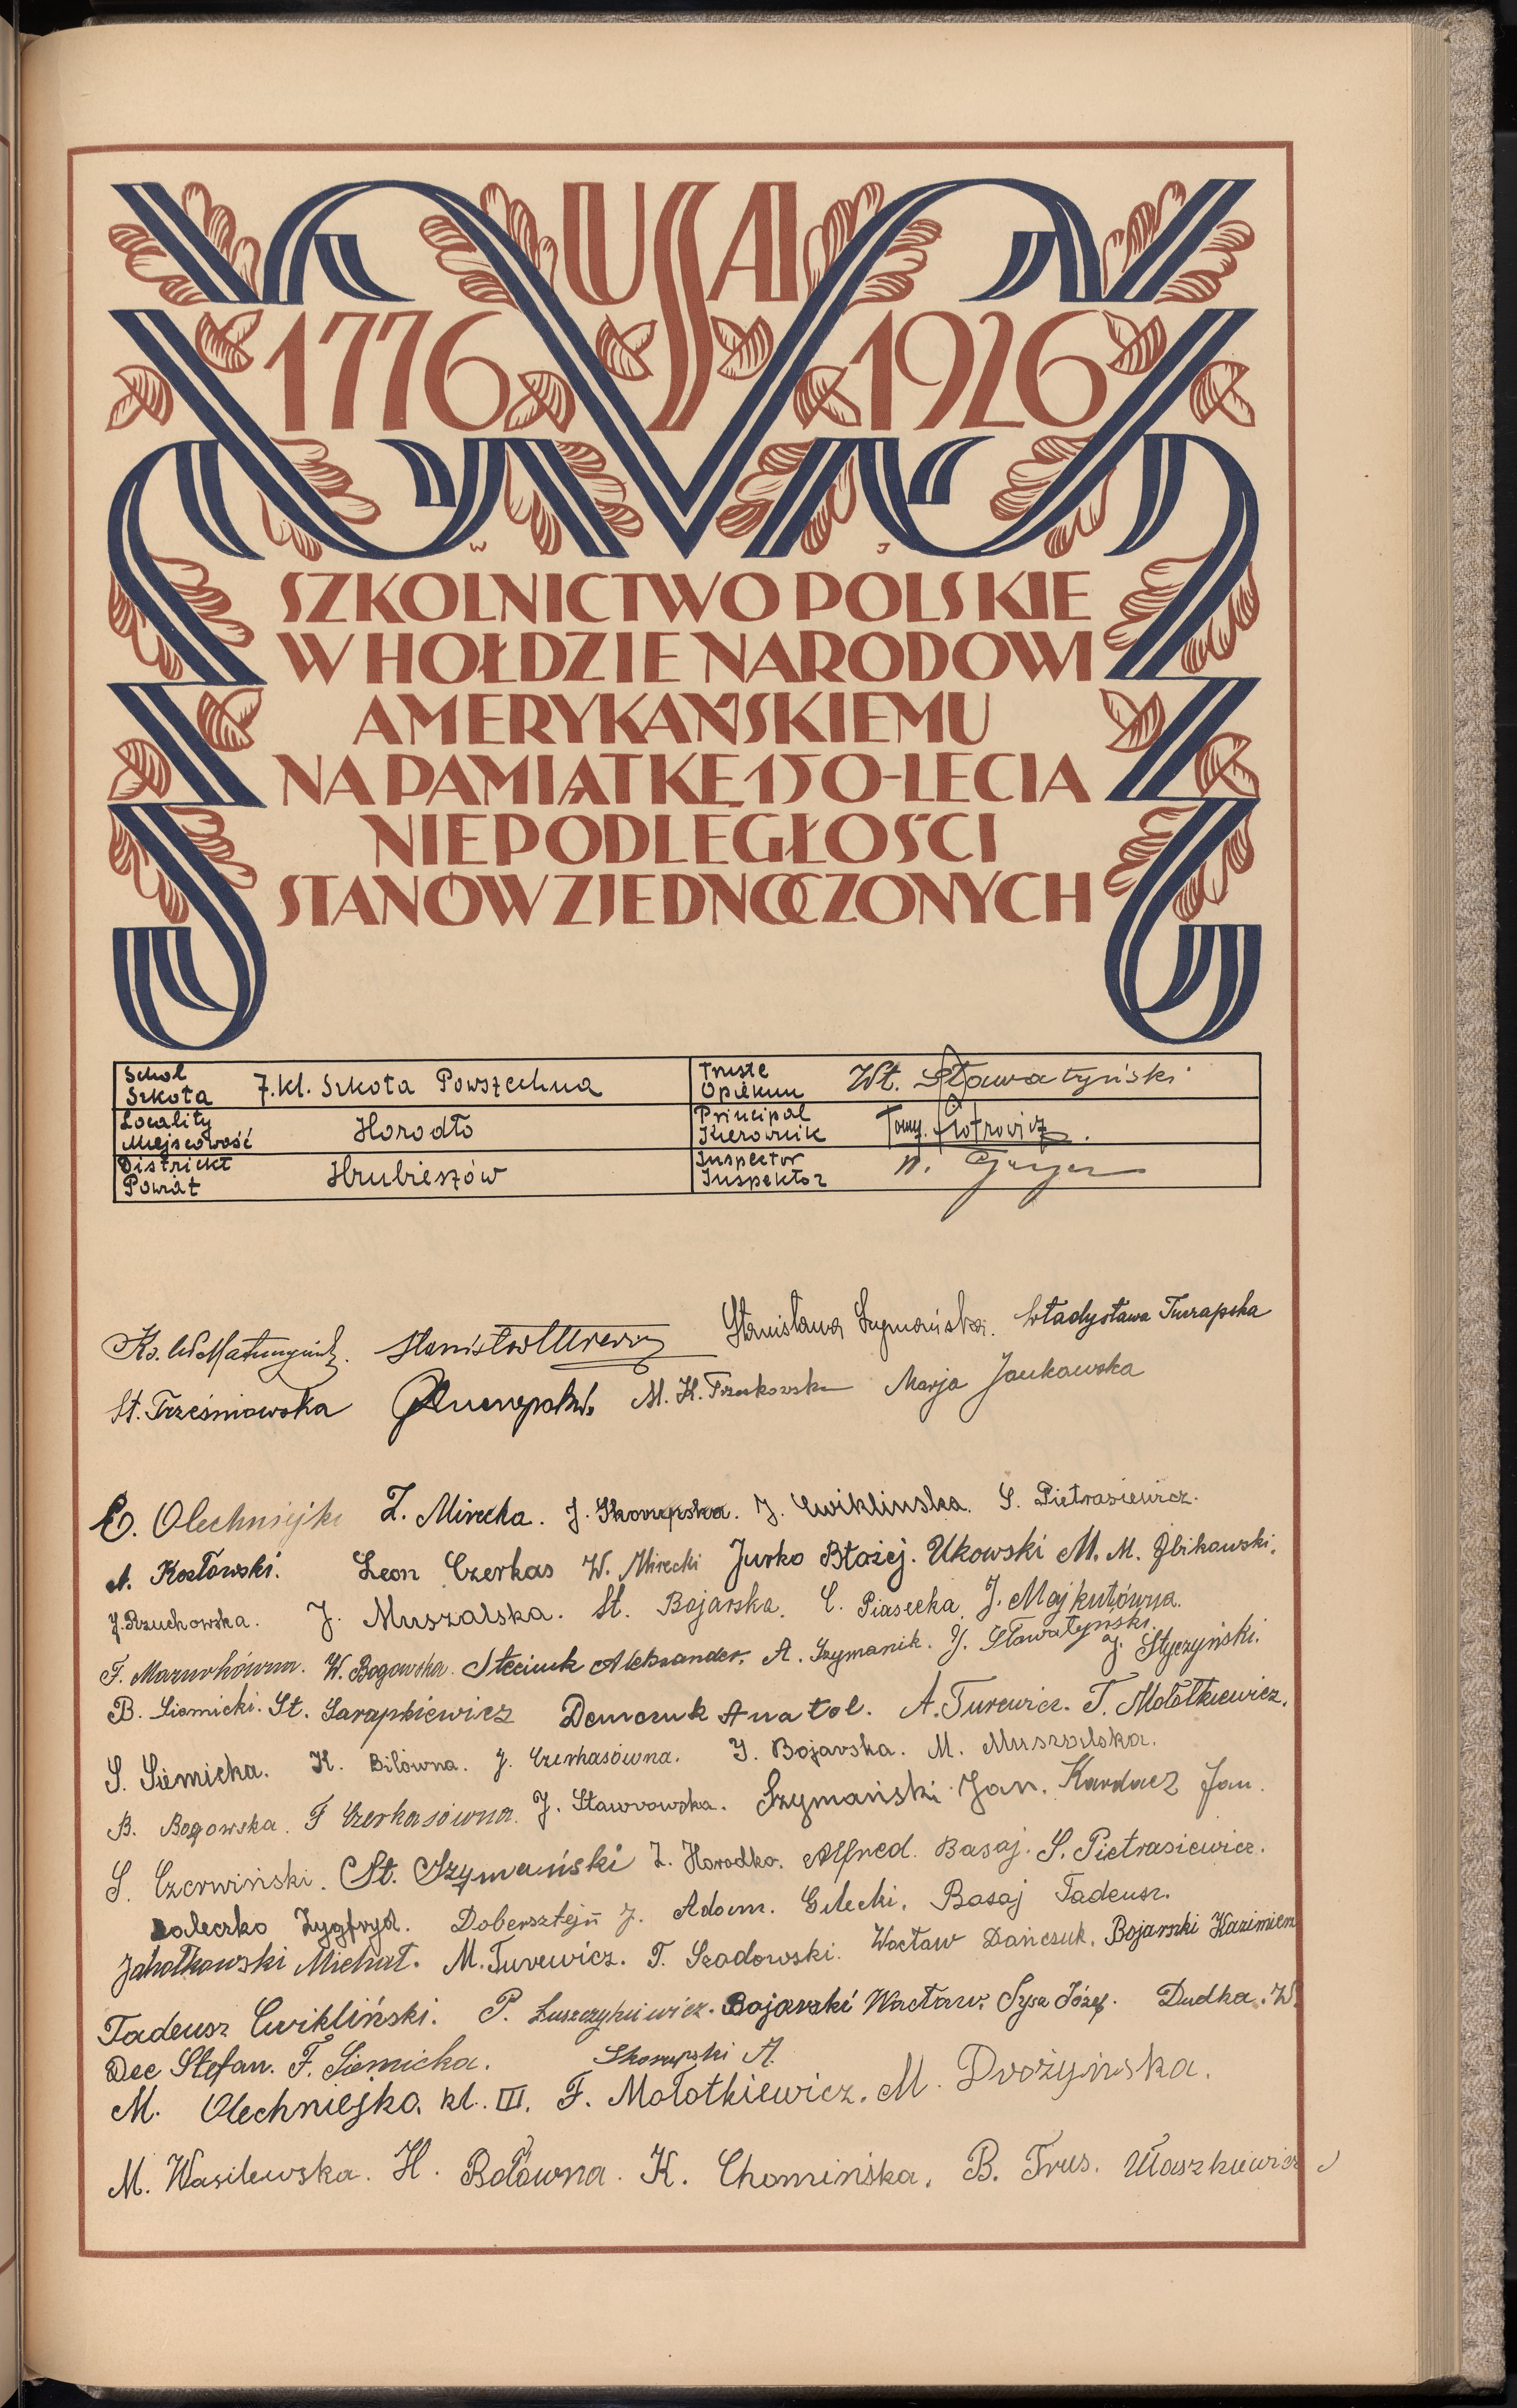 USA
1776 1926
W J
SZKOLNICTWO POLSKIE
W HOŁDZIE NARODOWI
AMERYKAŃSKIEMU
NA PAMIĄTKĘ 150-LECIA
NIEPODLEGŁOŚCI
STANÓW ZJEDNOCZONYCH
Schol
Szkoła
7.kl. Szkoła Powszechna
Truste
Opiekun
Wł. Sławatyński
Locality
Miejscowość
Horodło
Principal
Kierownik
Tom. Piotrowicz.
Districkt
Powiat
Hrubieszów
Inspector
Inspektor
Stanisława Szymańska. Władysława
St. Trześniowska M. K. Marja Jankowska
Z. Mirecka. J. Skorupska. J. Ćwiklinska. S. Pietrasiewicz.
A. Kozłowski. Leon Czerkas W. Mirecki Jurko Błażej. Ukowski M. M. Zbikowski.
J. Rzuchowska. J. Muszalska. St. Bojarska. C. Piasecka. J. Majkutówna.
F. Mazurkówna. W. Bogowska. Steciuk Aleksander. A. Szymanik. J. Sławatyński. J. Styczyński.
B. Siemicki. St. Sarapkiewicz Demczuk Anatol. A. Turewicz. T. Mołotkiewicz.
S. Siemicka. K. Bilówna. J. Czerkasówna. J. Bojarska. M. Muszalska.
B. Bogowska. F Czerkasówna. J. Stawrowska. Szymański Jan. Kardacz Jan.
S. Czerwiński. St. Szymański Z. Horodko. Alfred Basaj. S. Pietrasiewicz.
Zygfryd. Dobersztejn J. Adam Gilecki. Basaj Tadeusz.
Michał. M. Turewicz. T. Szadowski. Wacław Dańczuk. Bojarski Kazimierz
Tadeusz Cwikliński. P. Łuszczykiewicz. Bojarski Wacław. Sysa Józef. Dudka. W.
Dec Stefan. F. Siemicka. Skorupski A.
M. Olechniejko. kl. III. F. Mołotkiewicz. M. Drożyńska.
M. Wasilewska. H. Bołówna. K. Chomińska. B. Trus.